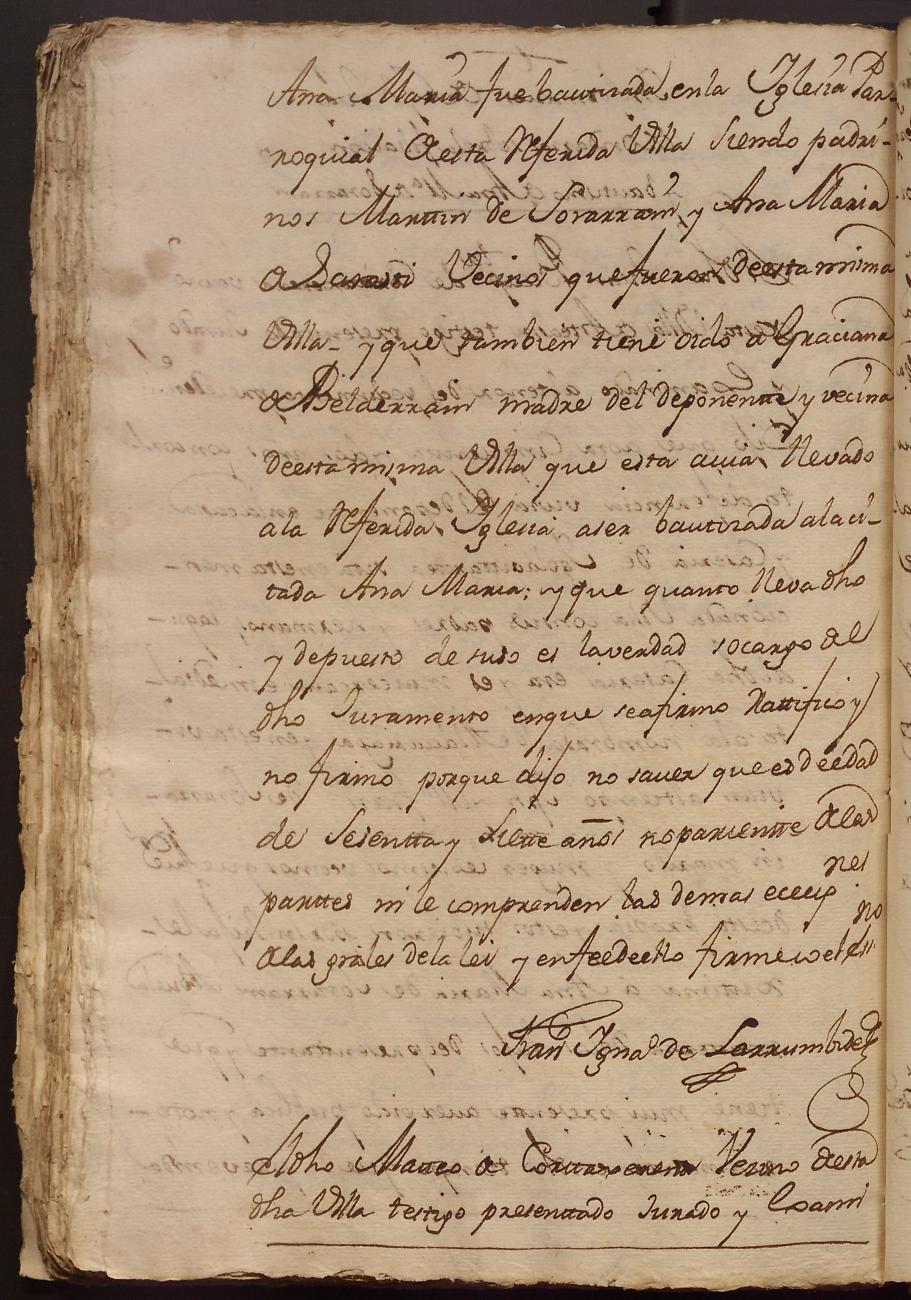 Ana Maria fue bautizada, en la Iglesia Par-
roquial de esta Referida Villa siendo padri-
nos Marttin de Sorarrain, y Ana Maria
de Vecinos que fueron de esta misma
Villa - y que tambien tiene oido a Graciana
de Belderrain madre del deponentte y vecina
de esta misma Villa que esta avia llevado
a la Referida Iglesia a ser bautizada a la ci-
tada Ana Maria; y que quanto lleva dho
y depuesto de suso es la verdad so cargo del
dho Juramento en que se afirmo Rattifico y
no firmo porque dijo no saver que es de edad
de Sesentta y Siette años no parientte de las
parttes ni le comprenden las demas eccep
nes
de las grâles de la lei y en fee de ello firme io el Essno
Franco Ignao de Larrumbide
El dho Matteo de Vezino de esta
dha Villa testigo presenttado Jurado y Exami